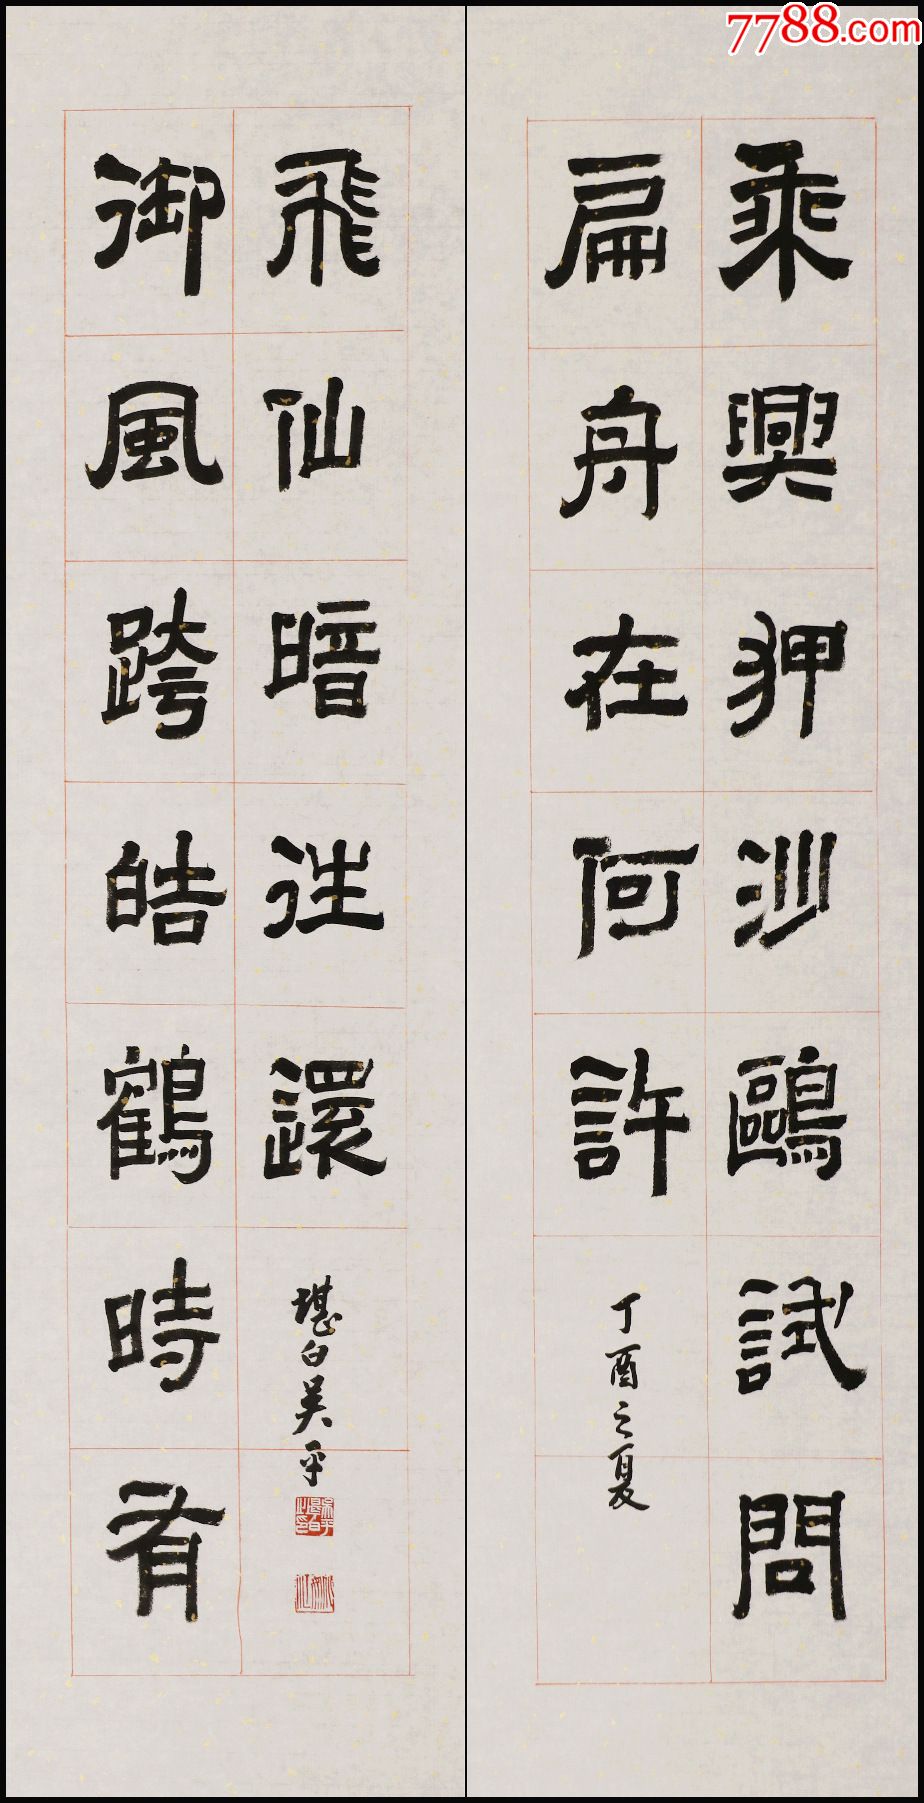 7788.com
乘興狎沙鷗試問
扁舟在何許
丁酉之夏
御風跨皓鶴時有
飛仙暗徃還
堪白吴平